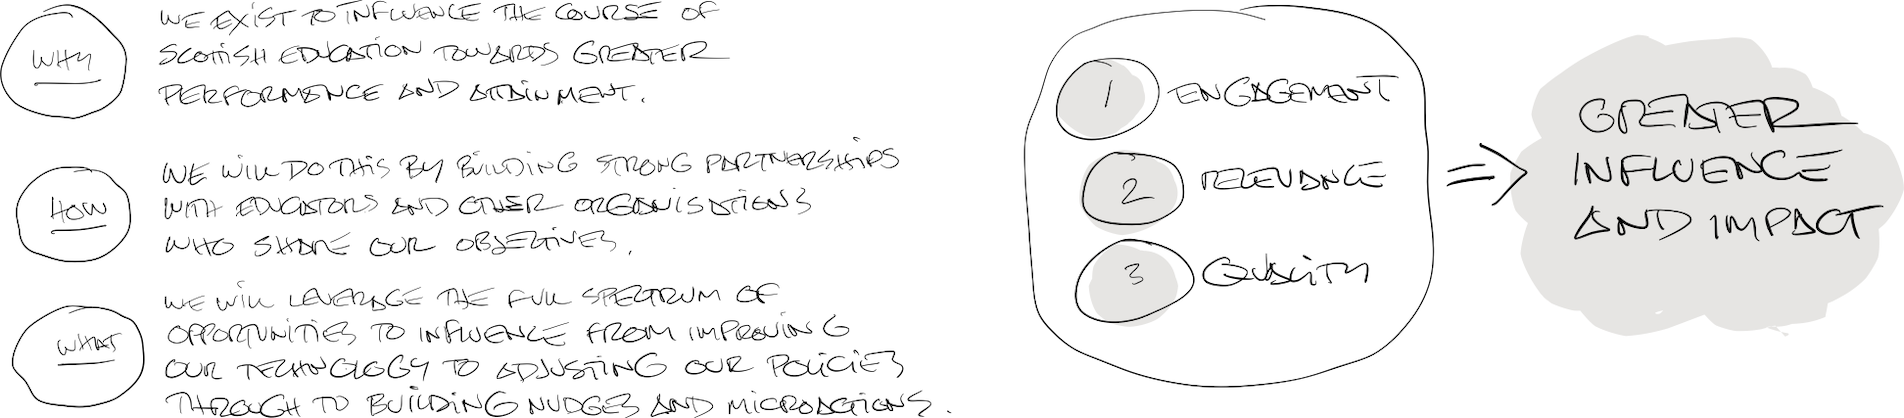 WHY
WE EXIST TO INFLUENCE THE COURSE OF
SCOTTISH EDUCATION TOWARDS GREATER
PERFORMANCE AND ATTAINMENT.
HOW
WE WILL DO THIS BY BUILDING STRONG PARTNERSHIPS
WITH EDUCATORS AND OTHER ORGANISATIONS
WHO SHARE OUR OBJECTIVES.
WHAT
WE WILL LEVERAGE THE FULL SPECTRUM OF
OPPORTUNITIES TO INFLUENCE FROM IMPROVING
OUR TECHNOLOGY TO ADJUSTING OUR POLICIES
THROUGH TO BUILDING NUDGES AND MICROACTIONS.
1 ENGAGEMENT
2 RELEVANCE
3 QUALITY
=>
GREATER
INFLUENCE
AND IMPACT